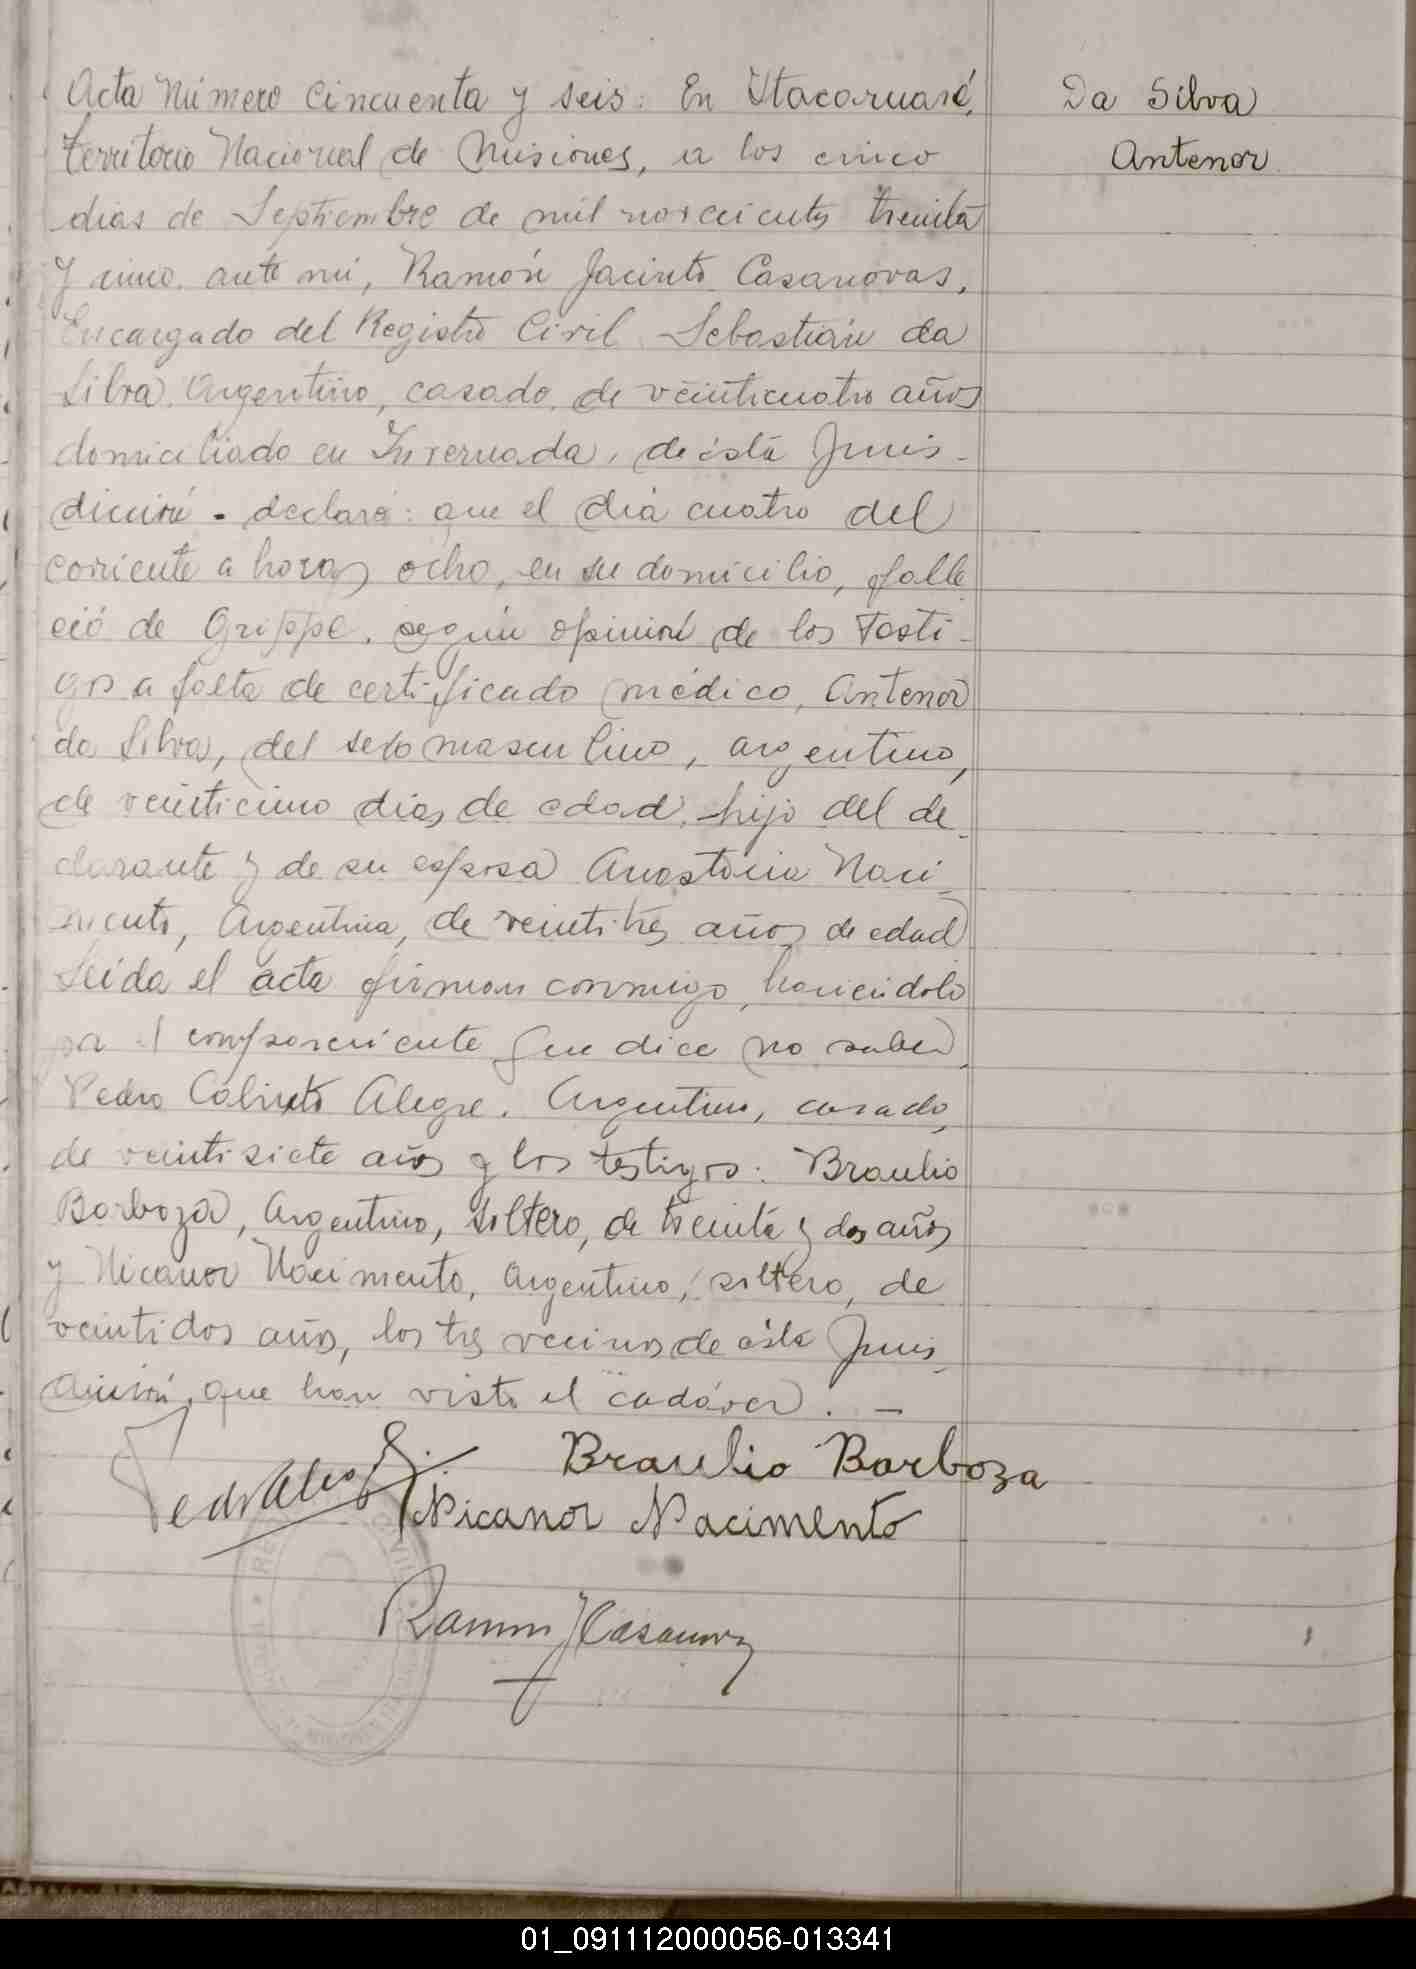 Acta Número Cincuenta y seis: En Itacaruaré,
territorio Nacional de Misiones, a los cinco
dias de Septiembre de mil novecientos treinta
y cinco, ante mi, Ramón Jacinto Casanovas,
Encargado del Registro Civil Sebastián da
Silva, Argentino, casado, de veinticuatro años
domiciliado en Invernada, de ésta Juris-
dicción. declaró: que el dia cuatro del
corriente a horas ocho, en su domicilio, falle
ció de Grippe, según opinión de los Testi-
gos a falta de certificado médico, Antenor
da Silva, del sexo masculino, argentino,
de veinticinco dias de edad, hijo del de-
clarante y de su esposa Anastacia Naci-
mento, Argentina, de veintitrés años de edad
Leida el acta firman conmigo, haciéndolo
por el compareciente que dice no saber,
Pedro Calixto Alegre, Argentino, casado,
de veintisiete años y los testigos: Braulio
Barboza, Argentino, soltero, de treinta y dos años
y Nicanor Nacimento, Argentino, soltero, de
veintidos años, los tres vecinos de ésta Juris-
dicción, que han visto el cadáver. —
Da Silva
Antenor
Braulio Barboza
Nicanor Nacimento
Ramon J Casanovas
01_091112000056-013341